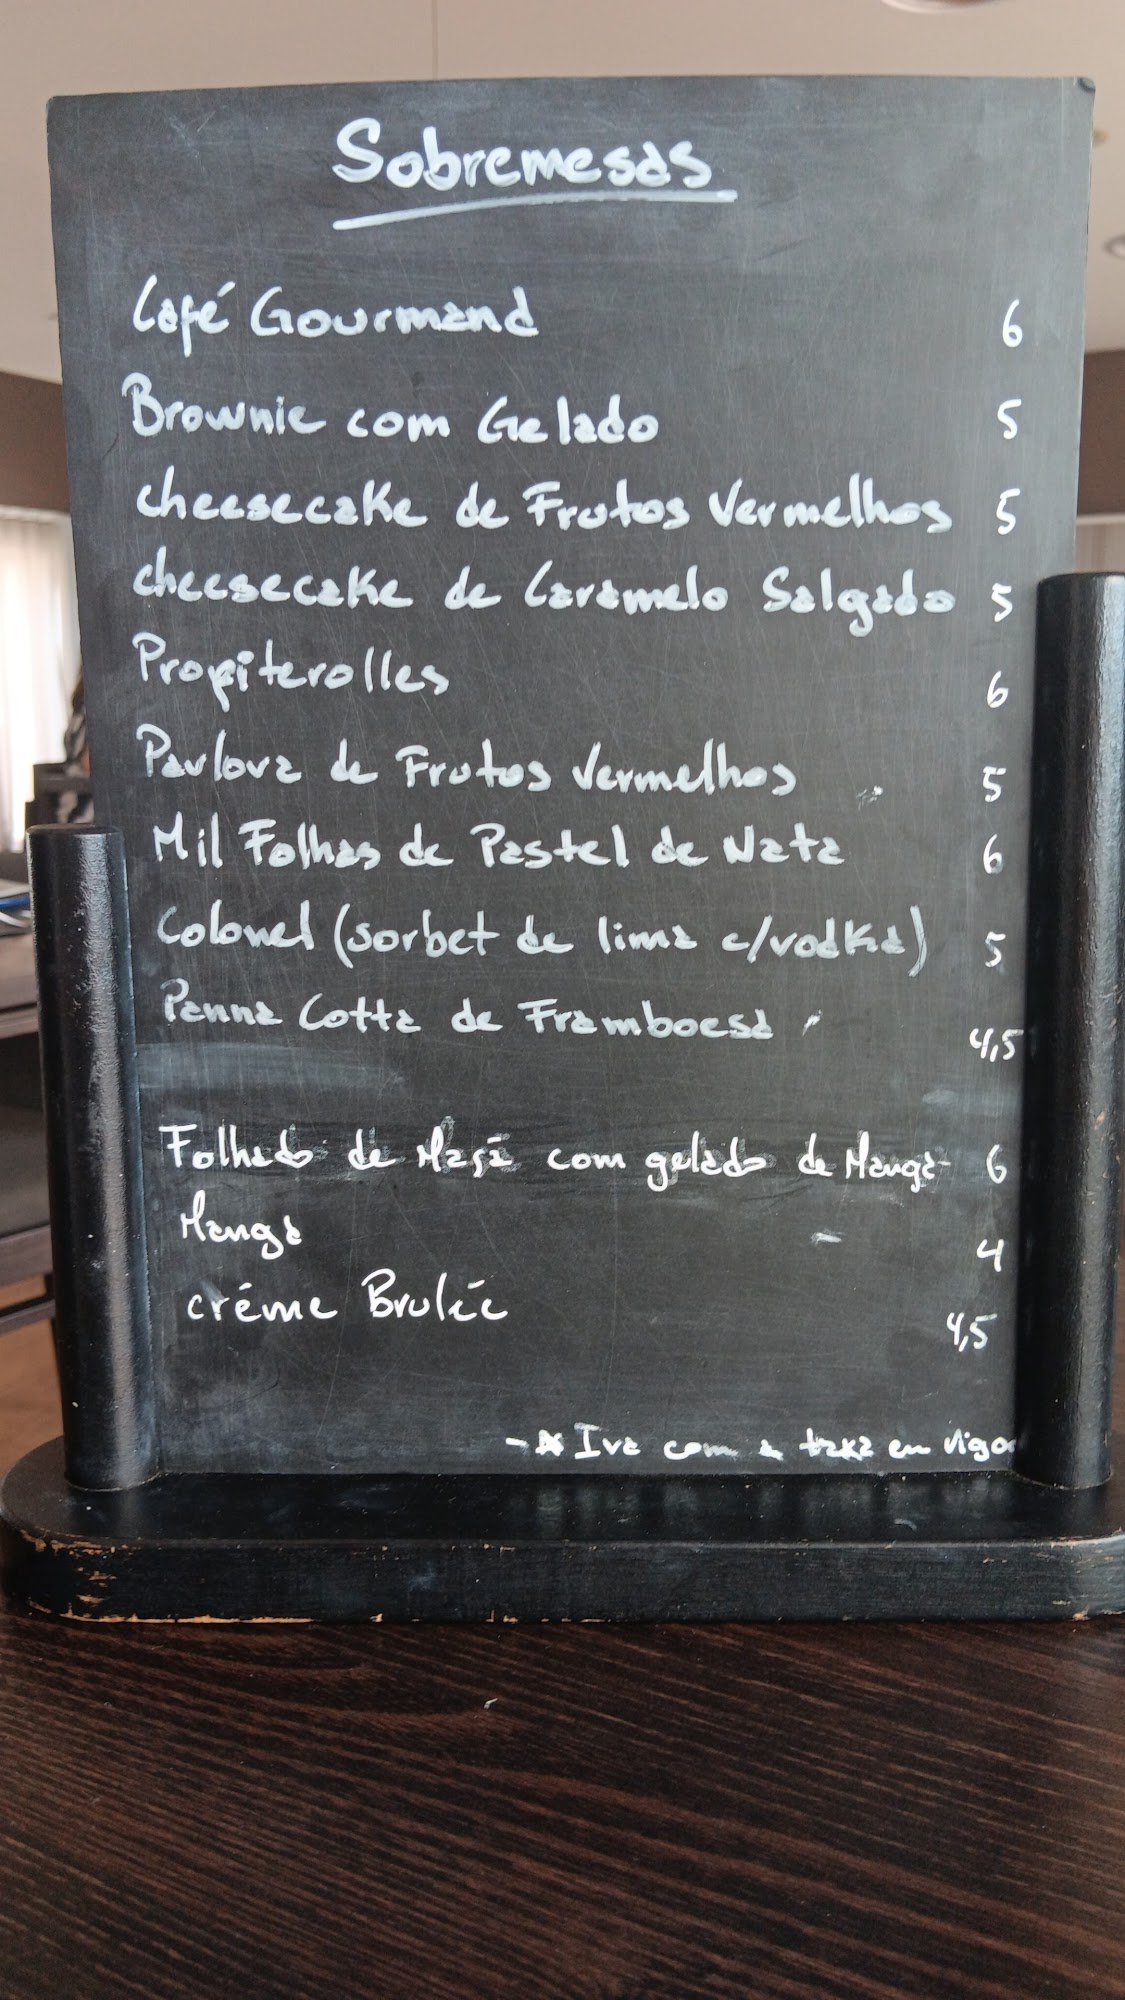 Sobremesas
Café Gourmand 6
Brownie com Gelado 5
cheesecake de Frutos Vermelhos 5
cheesecake de Caramelo Salgado 5
Profiterolles 6
Pavlova de Frutos Vermelhos 5
Mil Folhas de Pastel de Nata 6
Colonel (sorbet de lima c/vodka) 5
Panna Cotta de Framboesa 4,5
Folhado de Maçã com gelado de Manga 6
Manga 4
créme Brulée 4,5
-* Iva com a taxa em vigor